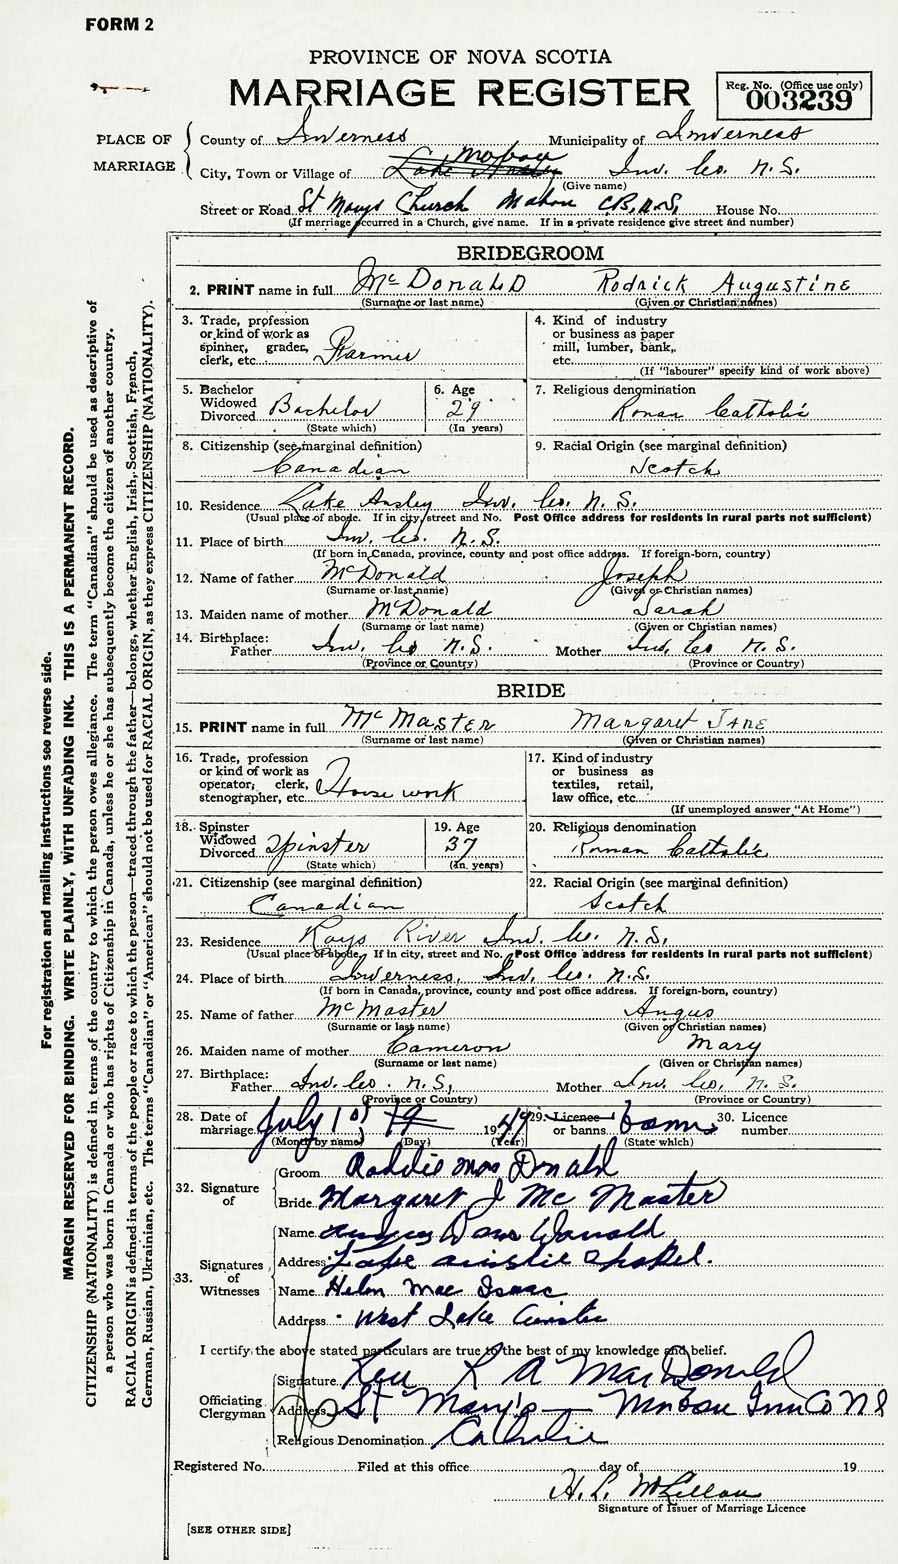 FORM 2
PROVINCE OF NOVA SCOTIA
MARRIAGE REGISTER
Reg. No. (Office use only)
003239
PLACE OF MARRIAGE
County of Inverness Municipality of Inverness
City, Town or Village of Lake Mabou Inv. Co. N.S.
(Give name)
Street or Road St Marys Church Mabou C.B. N.S. House No.
(If marriage occurred in a Church, give name. If in a private residence give street and number)
BRIDEGROOM
2. PRINT name in full McDonald Rodrick Augustine
(Surname or last name) (Given or Christian names)
3. Trade, profession or kind of work as spinner, grader, clerk, etc. Farmer
4. Kind of industry or business as paper mill, lumber, bank, etc.
(If "labourer" specify kind of work above)
5. Bachelor Widowed Divorced Bachelor
(State which)
6. Age 29
(In years)
7. Religious denomination
Roman Catholic
8. Citizenship (see marginal definition)
Canadian
9. Racial Origin (see marginal definition)
Scotch
10. Residence Lake Ansley Inv. Co. N. S.
(Usual place of abode. If in city, street and No. Post Office address for residents in rural parts not sufficient)
11. Place of birth Inv. Co. N. S.
(If born in Canada, province, county and post office address. If foreign-born, country)
12. Name of father McDonald Joseph
(Surname or last name) (Given or Christian names)
13. Maiden name of mother McDonald Sarah
(Surname or last name) (Given or Christian names)
14. Birthplace:
Father Inv. Co N.S. Mother Inv. Co N.S.
(Province or Country) (Province or Country)
BRIDE
15. PRINT name in full McMaster Margaret Jane
(Surname or last name) (Given or Christian names)
16. Trade, profession or kind of work as operator, clerk, stenographer, etc. House work
17. Kind of industry or business as textiles, retail, law office, etc.
(If unemployed answer "At Home")
18. Spinster Widowed Divorced Spinster
(State which)
19. Age 37
(In years)
20. Religious denomination
Roman Catholic
21. Citizenship (see marginal definition)
Canadian
22. Racial Origin (see marginal definition)
Scotch
23. Residence Rays River Inv. Co. N.S.
(Usual place of abode. If in city, street and No. Post Office address for residents in rural parts not sufficient)
24. Place of birth Inverness, Inv. Co. N.S.
(If born in Canada, province, county and post office address. If foreign-born, country)
25. Name of father McMaster Angus
(Surname or last name) (Given or Christian names)
26. Maiden name of mother Cameron Mary
(Surname or last name) (Given or Christian names)
27. Birthplace:
Father Inv. Co. N.S, Mother Inv. Co, N.S.
(Province or Country) (Province or Country)
28. Date of marriage July 19 1949
(Month by name) (Day) (Year)
29. Licence or banns banns
(State which)
30. Licence number
32. Signature of
Groom Roddie MacDonald
Bride Margaret J McMaster
33. Signatures of Witnesses
Name
Address Lake Ainslie Chapel.
Name Helen Mac Isaac
Address West Lake Ainslie
I certify the above stated particulars are true to the best of my knowledge and belief.
Officiating Clergyman
Signature Rev R A MacDonald
Address St Mary's — Mabou Inv Co NS
Religious Denomination Catholic
Registered No. Filed at this office day of 19
H. L. McLellan
Signature of Issuer of Marriage Licence
[SEE OTHER SIDE]
For registration and mailing instructions see reverse side.
MARGIN RESERVED FOR BINDING. WRITE PLAINLY, WITH UNFADING INK. THIS IS A PERMANENT RECORD.
CITIZENSHIP (NATIONALITY) is defined in terms of the country to which the person owes allegiance. The term "Canadian" should be used as descriptive of
a person who was born in Canada or who has rights of Citizenship in Canada, unless he or she has subsequently become the citizen of another country.
RACIAL ORIGIN is defined in terms of the people or race to which the person—traced through the father—belongs, whether English, Irish, Scottish, French,
German, Russian, Ukrainian, etc. The terms "Canadian" or "American" should not be used for RACIAL ORIGIN, as they express CITIZENSHIP (NATIONALITY).